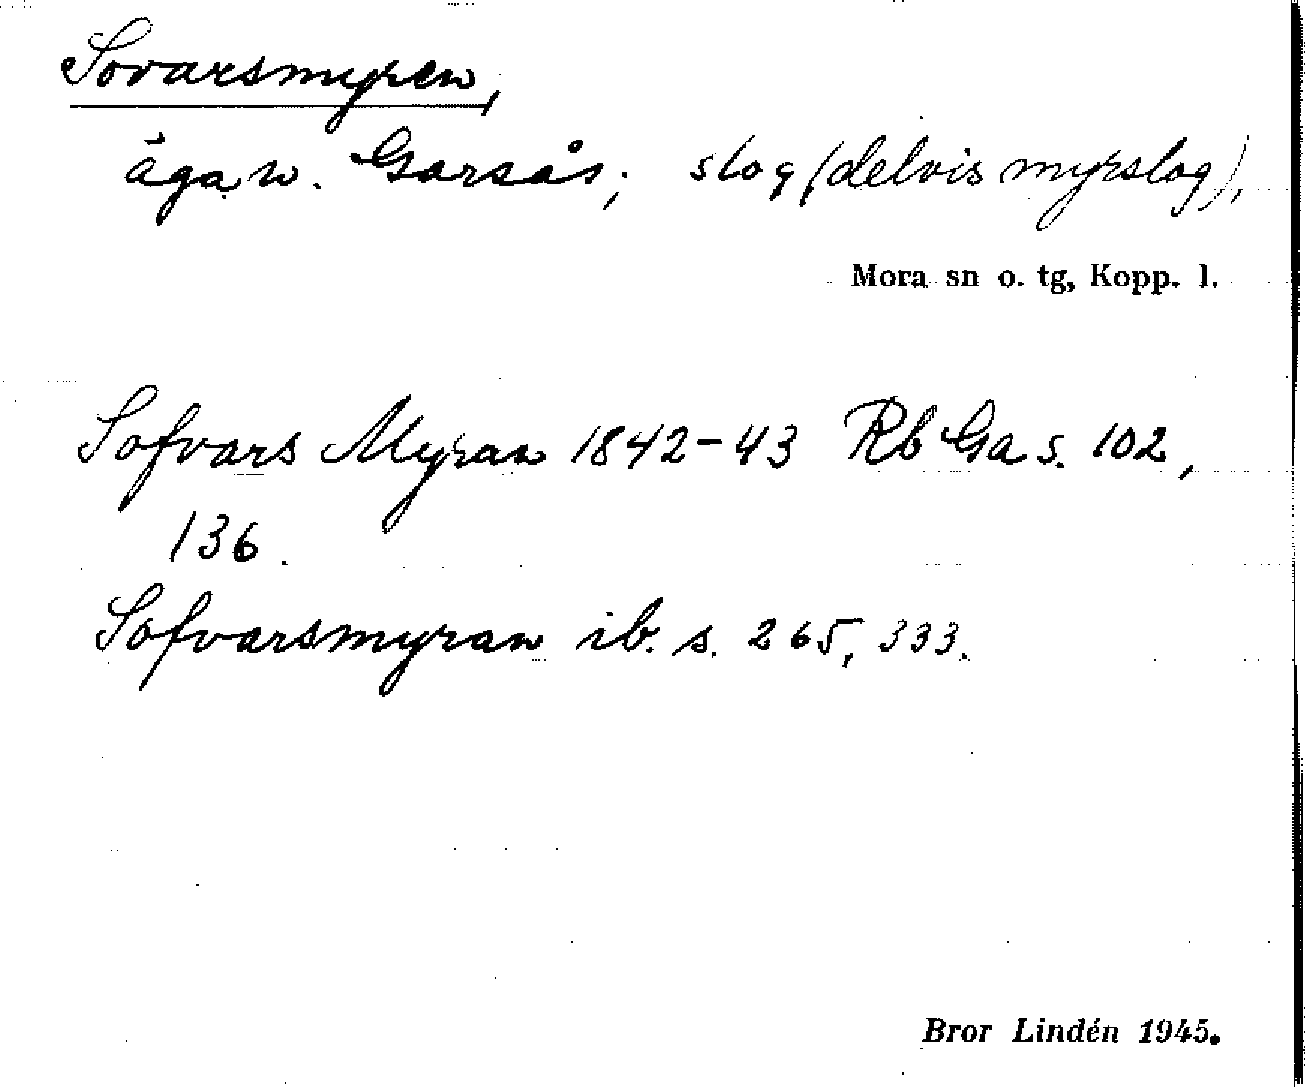 Sovarsmyren,
ägan. Garsås; slog (delvis myrslog),
Mora sn o. tg, Kopp. l.
Sofvars Myran 1842-43 Rb Ga s. 102,
136.
Sofvarsmyran ib. s. 265, 333.
Bror Lindén 1945.